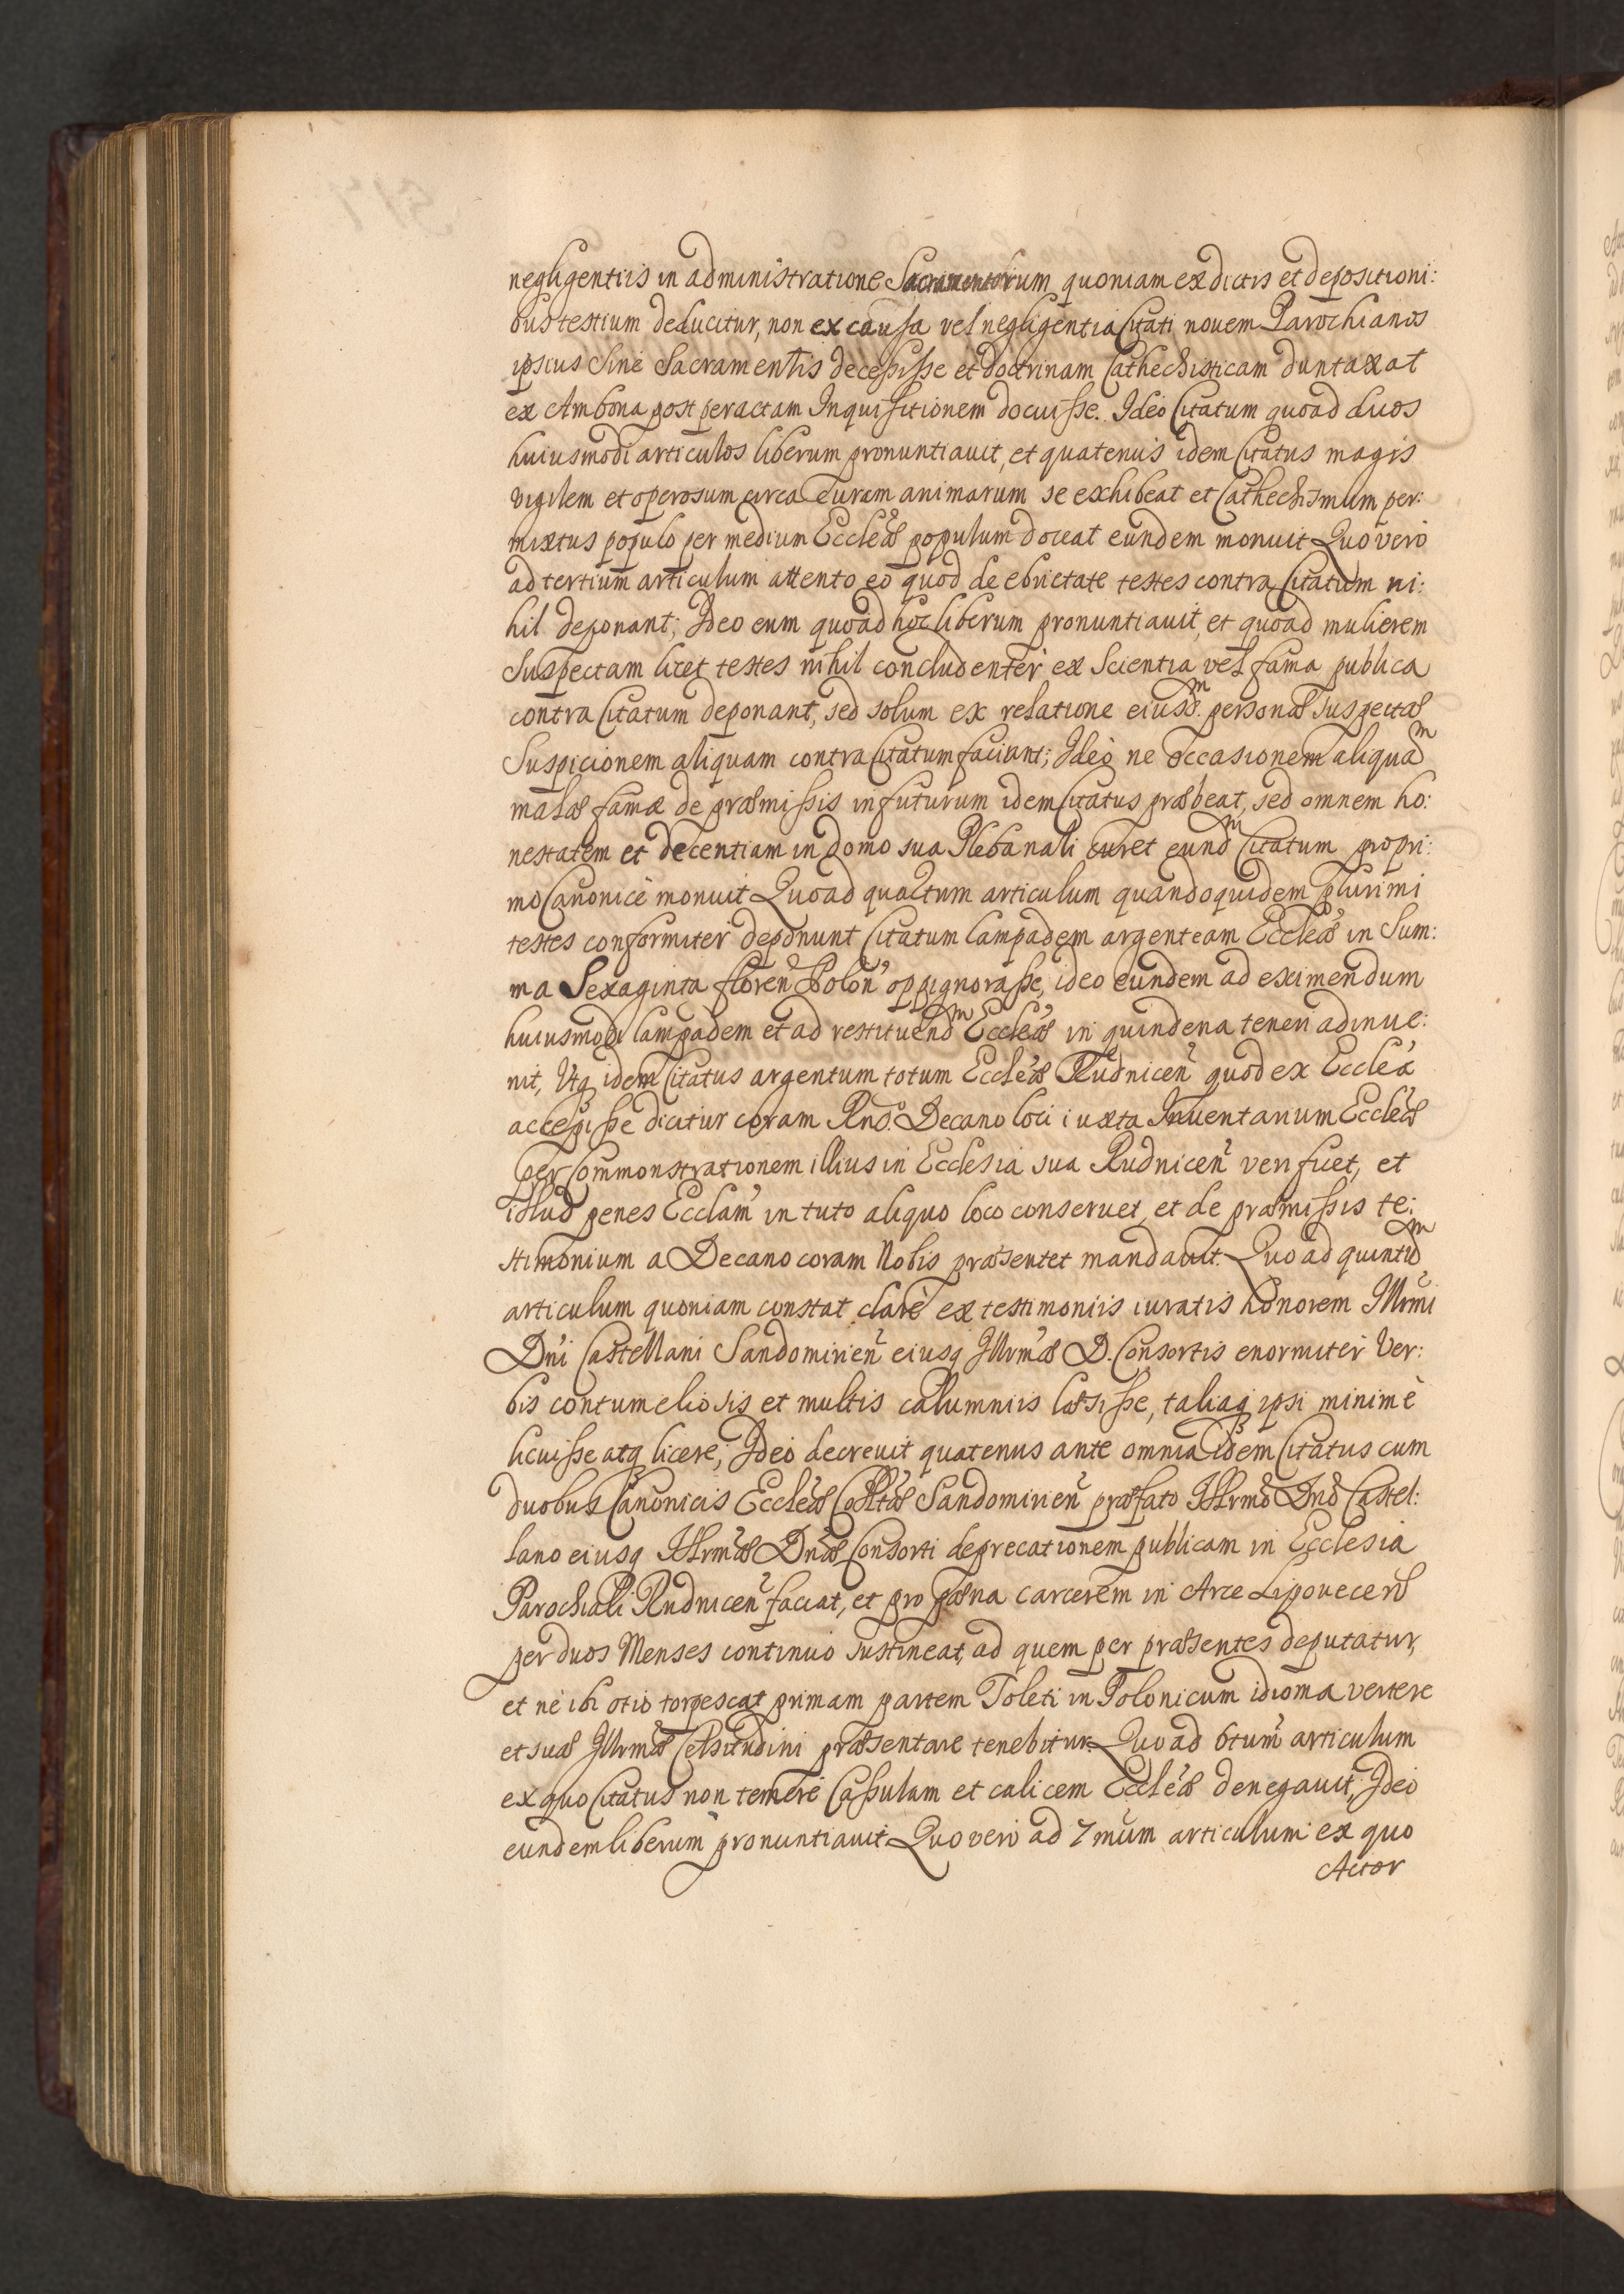 negligentiis in administratione Sacramentorum quoniam ex dictis et depositioni:
bus testium deducitur, non ex causa vel negligentia Citati novem Parochianos
ipsius Sine Sacramentis decessisse et doctrinam Cathechisticam duntaxat
ex Ambona post peractam Inquisitionem docuisse. Ideo Citatum quoad duos
huiusmodi articulos liberum pronuntiauit, et quatenus idem Citatus magis
vigilem et operosum circa Curam animarum se exhibeat et Cathechismum per:
mixtus populo per medium Eccleæ populum doceat eundem monuit Quo vero
ad tertium articulum attento eo quod de ebrietate testes contra Citatum ni:
hil deponant; Ideo eum quoad hoc liberum pronuntiauit, et quoad mulierem
Suspectam licet testes nihil concludenter ex Scientia vel fama publica
contra Citatum deponant, sed solum ex relatione eiusd.m personæ Suspectæ
Suspicionem aliquam contra Citatum faciant; Ideo ne occasionem aliquam
malæ famæ de præmissis in futurum idem Citatus præbeat, sed omnem ho:
nestatem et decentiam in domo sua Plebanali curet eundm Citatum pro pri:
mo Canonicè monuit Quoad quartum articulum quandoquidem plurimi
testes conformiter deponunt Citatum lampadem argenteam Eccleæ in Sum:
ma Sexaginta floren Polon oppignorasse, ideo eundem ad eximendum
huiusmodi lampadem et ad restituendm Eccleæ in quindena teneri adinue:
nit, Utq idem Citatus argentum totum Eccleæ Rudnicen quod ex Ecclea
accepisse dicitur coram Rndo Decano loci iuxta Inventarium Eccleæ
per Commonstrationem illius in Ecclesia sua Rudnicen verificet, et
illud penes Ecclam in tuto aliquo loco conseruet, et de præmissis te:
stimonium a Decano coram Nobis præsentet mandauit. Quo ad quintum
articulum quoniam constat clare ex testimoniis iuratis honorem Illrmi
Dni Castellani Sandomirien eiusq Illrmæ D. Consortis enormiter Ver:
bis contumeliosis et multis calumniis læsisse, taliaq ipsi minimè
licuisse atq licere; Ideo decreuit quatenus ante omnia idem Citatus cum
duobus Canonicis Eccleæ Colltæ Sandomirien præfato Illrmo Dno Castel:
lano eiusq Illrmæ Dnæ Consorti deprecationem publicam in Ecclesia
Parochiali Rudnicen faciat, et pro pæna carcerem in Arce Lipovecen
per duos Menses continuo sustineat, ad quem per præsentes deputatur,
et ne ibi otio torpescat primam partem Toleti in Polonicum idioma vertere
et suæ Illrmæ Celsitudini præsentare tenebitur. Quo ad 6tum articulum
ex quo Citatus non temere Casulam et calicem Eccleæ denegauit; Ideo
eundem liberum pronuntiauit Quo vero ad 7mum articulum ex quo
Actor